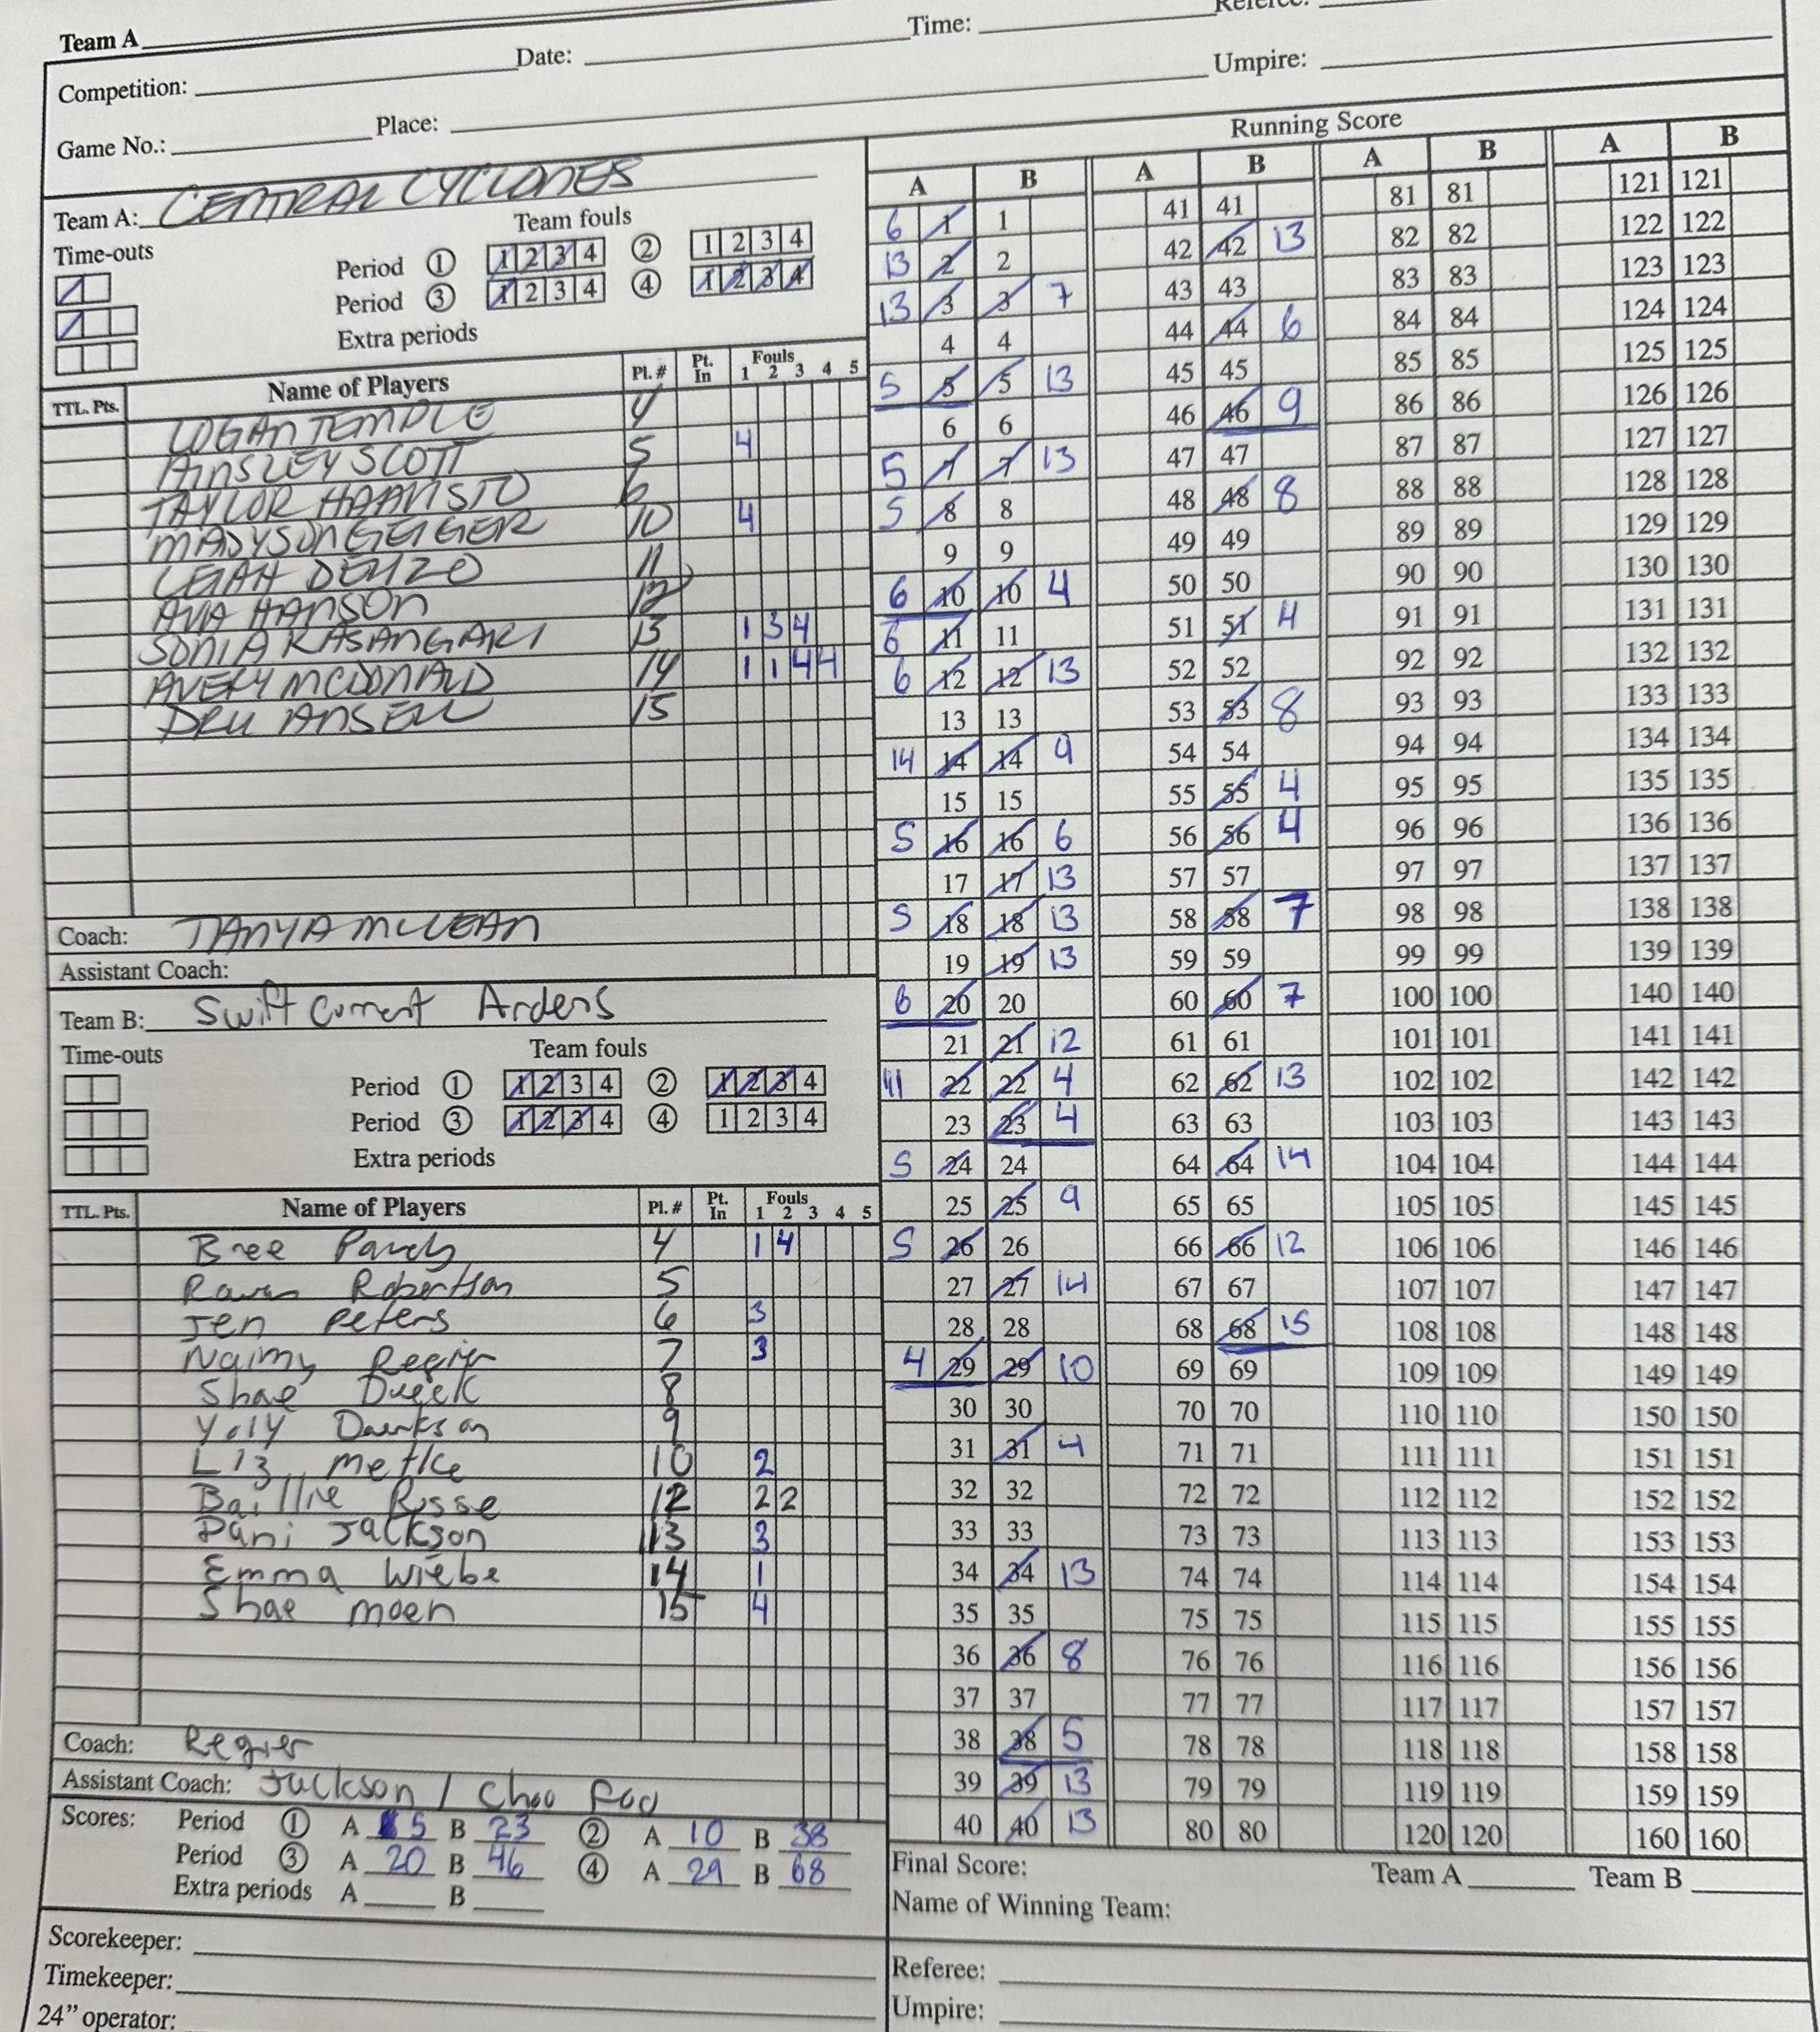 Team A
Competition: Date: Time:
Game No.: Place: Umpire:
Team A: CENTRAL CYCLONES
Time-outs Team fouls
Period ① 1 2 3 4 ② 1 2 3 4
Period ③ 1 2 3 4 ④ 1 2 3 4
Extra periods
TTL. Pts. Name of Players Pl. # Pt. In Fouls 1 2 3 4 5
LOGAN TEMPLE 4
AINSLEY SCOTT 5 4
TAYLOR HAAVISTO 6
MADYSON GEIGER 10 4
LEIAH DENZO 11
AVA HANSON 12
SONIA KASANGAKI 13 1 3 4
AVERY MCDONALD 14 1 1 4 4
DRU ANSELL 15
Coach: TANYA MCLEAN
Assistant Coach:
Team B: Swift Current Ardens
Time-outs Team fouls
Period ① 1 2 3 4 ② 1 2 3 4
Period ③ 1 2 3 4 ④ 1 2 3 4
Extra periods
TTL. Pts. Name of Players Pl. # Pt. In Fouls 1 2 3 4 5
Bree 4 1 4
Raven Robertson 5
Jen Peters 6 3
Regier 7 3
Shae Dueck 8
9
Liz 10 2
Baillie 12 2 2
Dani Jackson 13 3
Emma Wiebe 14 1
Shae Moen 15 4
Coach: Regier
Assistant Coach: Jackson /
Scores: Period ① A 5 B 23 ② A 10 B 38
Period ③ A 20 B 46 ④ A 29 B 68
Extra periods A B
Scorekeeper:
Timekeeper:
24" operator:
Running Score
A B A B A B A B
6 1 1 41 41 81 81 121 121
13 2 2 42 42 13 82 82 122 122
13 3 3 7 43 43 83 83 123 123
4 4 44 44 6 84 84 124 124
5 5 5 13 45 45 85 85 125 125
6 6 46 46 9 86 86 126 126
5 7 7 13 47 47 87 87 127 127
5 8 8 48 48 8 88 88 128 128
9 9 49 49 89 89 129 129
6 10 10 4 50 50 90 90 130 130
6 11 11 51 51 4 91 91 131 131
6 12 12 13 52 52 92 92 132 132
13 13 53 53 8 93 93 133 133
14 14 14 9 54 54 94 94 134 134
15 15 55 55 4 95 95 135 135
5 16 16 6 56 56 4 96 96 136 136
17 17 13 57 57 97 97 137 137
5 18 18 13 58 58 7 98 98 138 138
19 19 13 59 59 99 99 139 139
6 20 20 60 60 7 100 100 140 140
21 21 12 61 61 101 101 141 141
11 22 22 4 62 62 13 102 102 142 142
23 23 4 63 63 103 103 143 143
5 24 24 64 64 14 104 104 144 144
25 25 9 65 65 105 105 145 145
5 26 26 66 66 12 106 106 146 146
27 27 14 67 67 107 107 147 147
28 28 68 68 15 108 108 148 148
4 29 29 10 69 69 109 109 149 149
30 30 70 70 110 110 150 150
31 31 4 71 71 111 111 151 151
32 32 72 72 112 112 152 152
33 33 73 73 113 113 153 153
34 34 13 74 74 114 114 154 154
35 35 75 75 115 115 155 155
36 36 8 76 76 116 116 156 156
37 37 77 77 117 117 157 157
38 38 5 78 78 118 118 158 158
39 39 13 79 79 119 119 159 159
40 40 13 80 80 120 120 160 160
Final Score: Team A Team B
Name of Winning Team:
Referee:
Umpire: